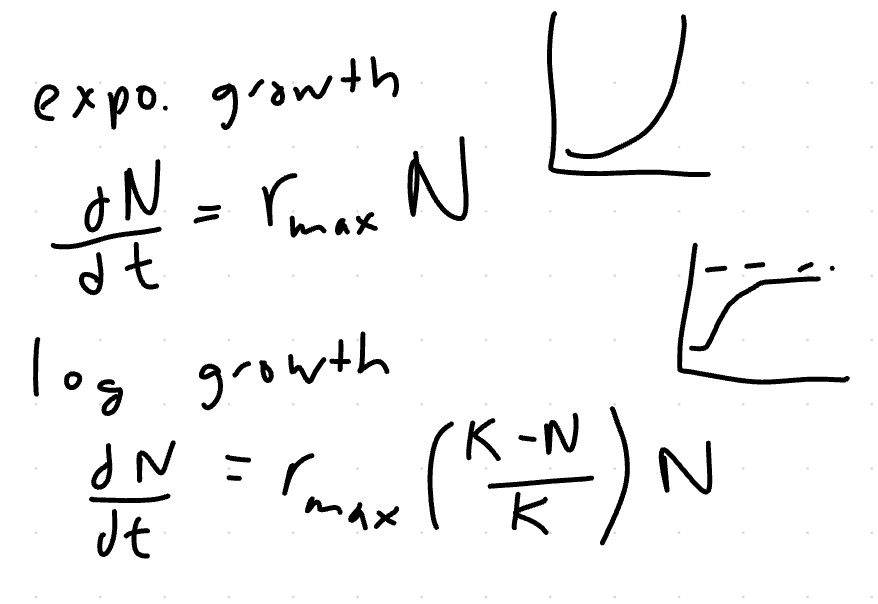 expo. growth
dN/dt = r_max N
log growth
dN/dt = r_max (K-N/K) N